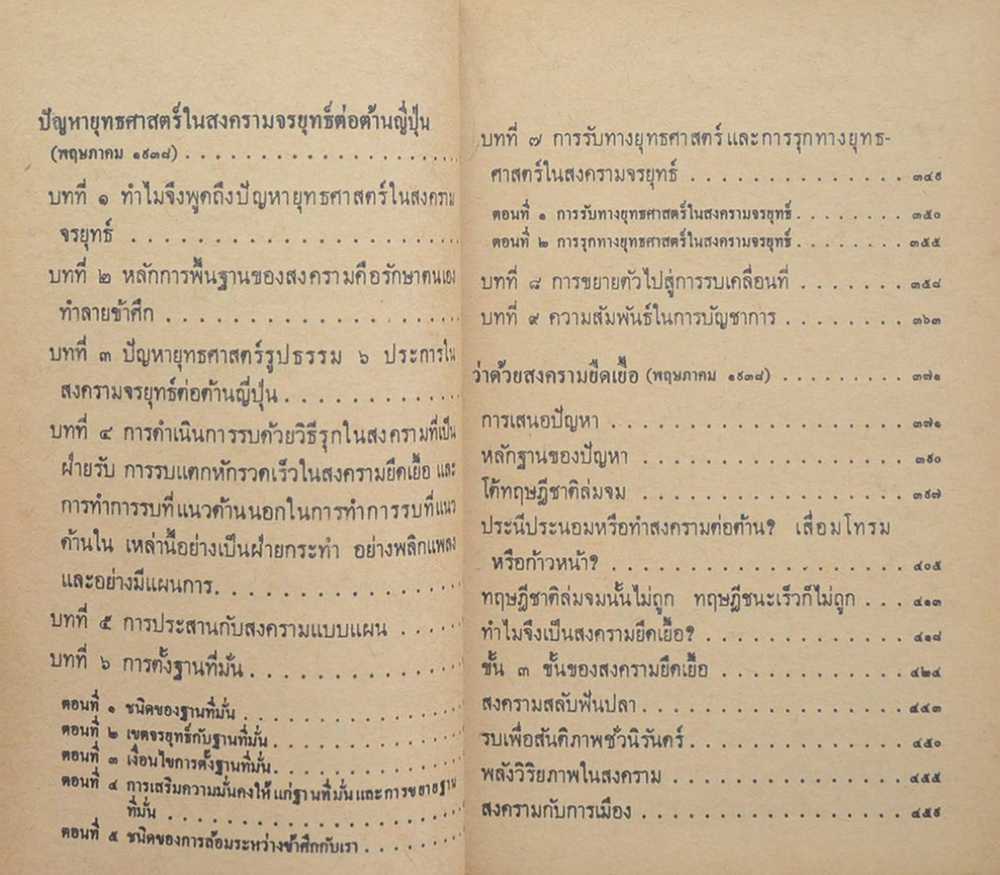 ปัญหายุทธศาสตร์ในสงครามจรยุทธ์ต่อต้านญี่ปุ่น
(พฤษภาคม ๑๙๓๘) . . . . . . . . . . . . . . . . . . . . .
บทที่ ๑ ทำไมจึงพูดถึงปัญหายุทธศาสตร์ในสงคราม
จรยุทธ์ . . . . . . . . . . . . . . . . . . . .
บทที่ ๒ หลักการพื้นฐานของสงครามคือรักษาตนเอง
ทำลายข้าศึก . . . . . . . . . . . . . . . . . .
บทที่ ๓ ปัญหายุทธศาสตร์รูปธรรม ๖ ประการใน
สงครามจรยุทธ์ต่อต้านญี่ปุ่น . . . . . . . . . . .
บทที่ ๔ การดำเนินการรบด้วยวิธีรุกในสงครามที่เป็น
ฝ่ายรับ การรบแตกหักรวดเร็วในสงครามยืดเยื้อ และ
การทำการรบที่แนวด้านนอกในการทำการรบที่แนว
ด้านใน เหล่านี้อย่างเป็นฝ่ายกระทำ อย่างพลิกแพลง
และอย่างมีแผนการ . . . . . . . . . . . . . . .
บทที่ ๕ การประสานกับสงครามแบบแผน . . . . .
บทที่ ๖ การตั้งฐานที่มั่น . . . . . . . . . . . . .
ตอนที่ ๑ ชนิดของฐานที่มั่น . . . . . . . . . . . . . .
ตอนที่ ๒ เขตจรยุทธ์กับฐานที่มั่น . . . . . . . . . . . .
ตอนที่ ๓ เงื่อนไขการตั้งฐานที่มั่น . . . . . . . . . . . .
ตอนที่ ๔ การเสริมความมั่นคงให้แก่ฐานที่มั่นและการขยายฐาน
ที่มั่น . . . . . . . . . . . . . . . . . . .
ตอนที่ ๕ ชนิดของการล้อมระหว่างข้าศึกกับเรา . . . . . . .
บทที่ ๗ การรับทางยุทธศาสตร์และการรุกทางยุทธ-
ศาสตร์ในสงครามจรยุทธ์ . . . . . . . . . . . . . ๓๔๙
ตอนที่ ๑ การรับทางยุทธศาสตร์ในสงครามจรยุทธ์ . . . . . . . . ๓๕๐
ตอนที่ ๒ การรุกทางยุทธศาสตร์ในสงครามจรยุทธ์ . . . . . . . . ๓๕๕
บทที่ ๘ การขยายตัวไปสู่การรบเคลื่อนที่ . . . . . . . ๓๕๘
บทที่ ๙ ความสัมพันธ์ในการบัญชาการ . . . . . . . . ๓๖๓
ว่าด้วยสงครามยืดเยื้อ (พฤษภาคม ๑๙๓๘) . . . . . . . . . ๓๗๑
การเสนอปัญหา . . . . . . . . . . . . . . . . . . ๓๗๑
หลักฐานของปัญหา . . . . . . . . . . . . . . . . ๓๙๐
โต้ทฤษฎีชาติล่มจม . . . . . . . . . . . . . . . . ๓๙๗
ประนีประนอมหรือทำสงครามต่อต้าน? เสื่อมโทรม
หรือก้าวหน้า? . . . . . . . . . . . . . . . . . . ๔๐๕
ทฤษฎีชาติล่มจมนั้นไม่ถูก ทฤษฎีชนะเร็วก็ไม่ถูก . . . ๔๑๓
ทำไมจึงเป็นสงครามยืดเยื้อ? . . . . . . . . . . . . ๔๑๘
ขั้น ๓ ขั้นของสงครามยืดเยื้อ . . . . . . . . . . . . ๔๒๔
สงครามสลับฟันปลา . . . . . . . . . . . . . . . . ๔๔๓
รบเพื่อสันติภาพชั่วนิรันดร์ . . . . . . . . . . . . . ๔๕๐
พลังวิริยภาพในสงคราม . . . . . . . . . . . . . . ๔๕๕
สงครามกับการเมือง . . . . . . . . . . . . . . . . ๔๕๙